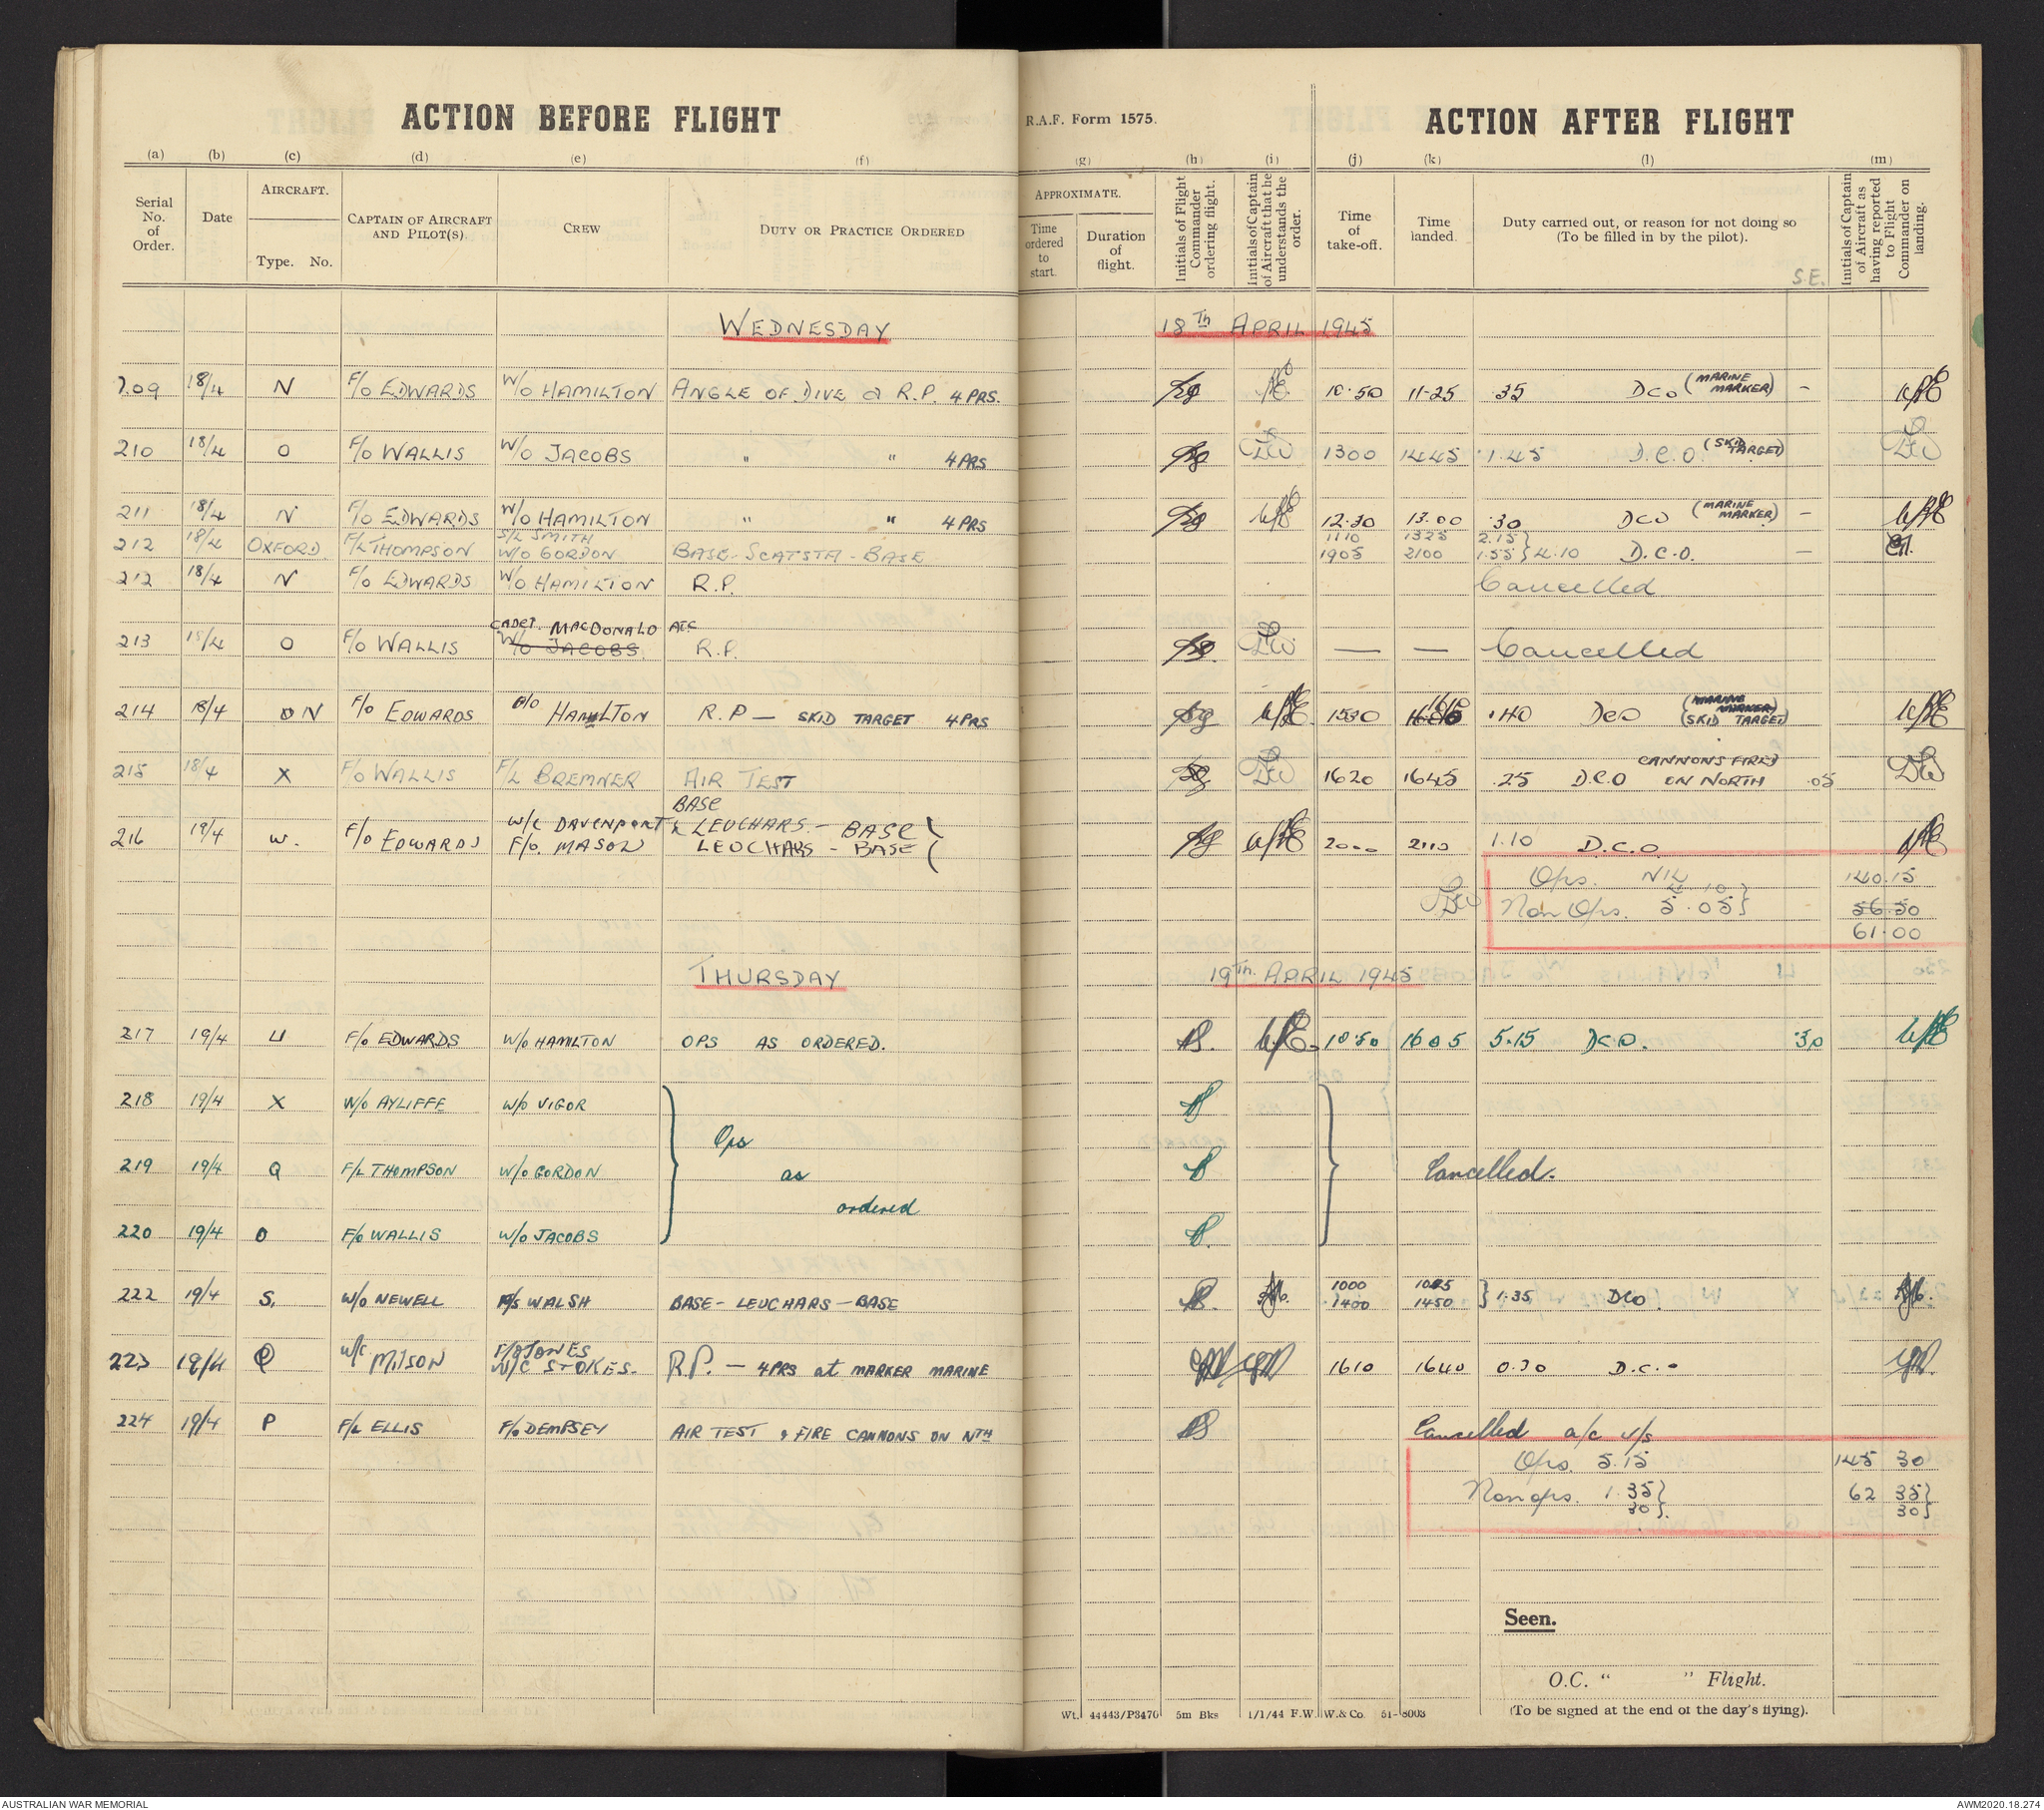 ACTION BEFORE FLIGHT
R.A.F. Form 1575.
ACTION AFTER FLIGHT
(a) (b) (c) (d) (e) (f) (g) (h) (i) (j) (k) (l) (m)
Serial No. of Order.
Date
AIRCRAFT.
Type. No.
CAPTAIN OF AIRCRAFT AND PILOT(S)
CREW
DUTY OR PRACTICE ORDERED
APPROXIMATE.
Time ordered to start.
Duration of flight.
Initials of Flight Commander ordering flight.
Initials of Captain of Aircraft that he understands the order.
Time of take-off.
Time landed.
Duty carried out, or reason for not doing so (To be filled in by the pilot).
S.E.
Initials of Captain of Aircraft as having reported to Flight Commander on landing.
WEDNESDAY 18TH APRIL 1945
209 18/4 N F/O EDWARDS W/O HAMILTON ANGLE OF DIVE & R.P. 4 PRS. 10.50 11.25 .35 DCO (MARINE MARKER) -
210 18/4 O F/O WALLIS W/O JACOBS " " 4 PRS 1300 1445 1.45 D.C.O. (SKID TARGET)
211 18/4 N F/O EDWARDS W/O HAMILTON " " 4 PRS 12.30 13.00 .30 DCO (MARINE MARKER) -
S/L SMITH 1110 1325 2.15 }
212 18/4 OXFORD F/L THOMPSON W/O GORDON BASE - SCATSTA - BASE 1905 2100 1.55 } 4.10 D.C.O. -
212 18/4 N F/O EDWARDS W/O HAMILTON R.P. Cancelled
CADET MACDONALD ATC
213 18/4 O F/O WALLIS W/O JACOBS R.P. — — Cancelled
214 18/4 O N F/O EDWARDS HAMILTON R.P — SKID TARGET 4 PRS 1530 1610 .40 DCO (MARINE MARKER) (SKID TARGET)
215 18/4 X F/O WALLIS F/L BREMNER AIR TEST 1620 1645 .25 D.C.O CANNONS FIRED ON NORTH .05
BASE
216 19/4 W. F/O EDWARDS W/C DAVENPORT & LEUCHARS - BASE
F/O. MASON LEUCHARS - BASE 2000 2110 1.10 D.C.O.
Ops. NIL 140.15
4 10 }
Non Ops. 5.05 } 56.50
61.00
THURSDAY 19TH. APRIL 1945
217 19/4 U F/O EDWARDS W/O HAMILTON OPS AS ORDERED. 10.50 1605 5.15 DCO. .30
218 19/4 X W/O AYLIFFE W/O VIGOR
Ops
219 19/4 Q F/L THOMPSON W/O GORDON as Cancelled.
ordered
220 19/4 O F/O WALLIS W/O JACOBS
1000 1045
222 19/4 S, W/O NEWELL F/S WALSH BASE - LEUCHARS - BASE 1400 1450 } 1.35 DCO.
F/O JONES
223 19/4 Q W/C. MILSON W/C STOKES. R.P. — 4 PRS at MARKER MARINE 1610 1640 0.30 D.C.O
224 19/4 P F/L ELLIS F/O DEMPSEY AIR TEST & FIRE CANNONS ON NTH Cancelled a/c u/s
Ops. 5.15 145 30
Non ops. 1.35 } 62 35 }
30 } 30 }
Seen.
O.C. “ ” Flight.
Wt. 44443/P3476 5m Bks 1/1/44 F.W. W.& Co. 51-8003
(To be signed at the end of the day's flying).
AUSTRALIAN WAR MEMORIAL
AWM2020.18.274